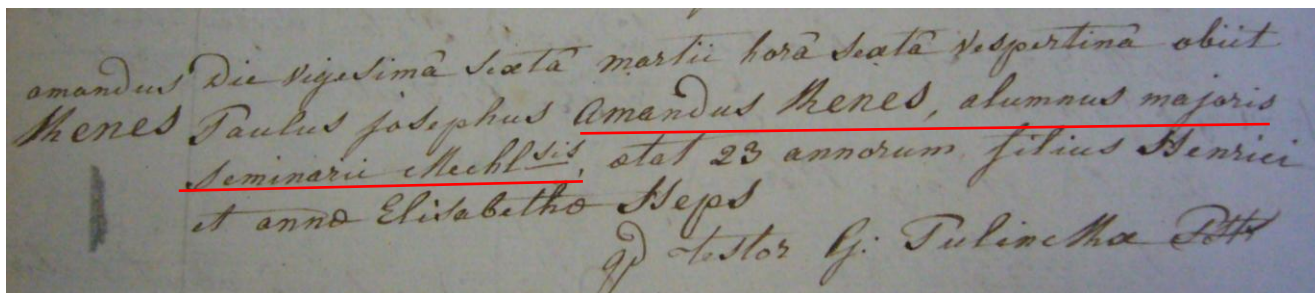 amandus Die vigesimâ sextâ martii horâ sextâ vespertinâ obiit
Renes Paulus josephus Amandus Renes, alumnus majoris
seminarii Mechlsis, ætat 23 annorum filius Henrici
et annæ Elisabethæ Heps
qd testor G: Tulinckx Pstr